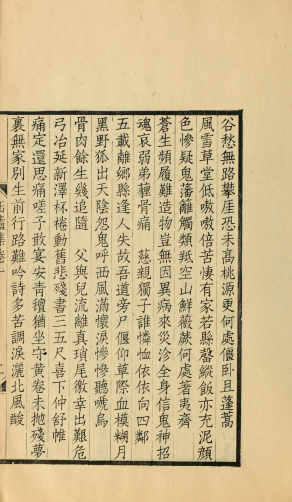 谷愁無路攀崖恐未高桃源更何處偃臥且蓬蒿
風雪草堂低嗷嗷倍苦悽有家若縣磬縱飯亦充泥顏
色慘疑鬼藩籬觸類羝空山鮮薇蕨何處著夷齊
蒼生頻履難造物豈無因異病來災沴全身信鬼神招
魂哀弱弟瘞骨痛 慈親獨子誰憐恤依依向四鄰
五載離鄉縣逢人失故吾道旁尸偃仰草際血模糊月
黑野狐出天陰怨鬼呼西風滿懷淚慘慘聽嗁烏
骨肉餘生幾追隨 父與兒流離真瑣尾徼幸出艱危
弓冶延新澤杯棬動舊悲殘書三五尺喜下仲舒帷
痛定還思痛嗟予敢宴安青氊猶坐守黃卷未拋殘夢
裏無家別生前行路難吟詩多苦調淚灑北風酸